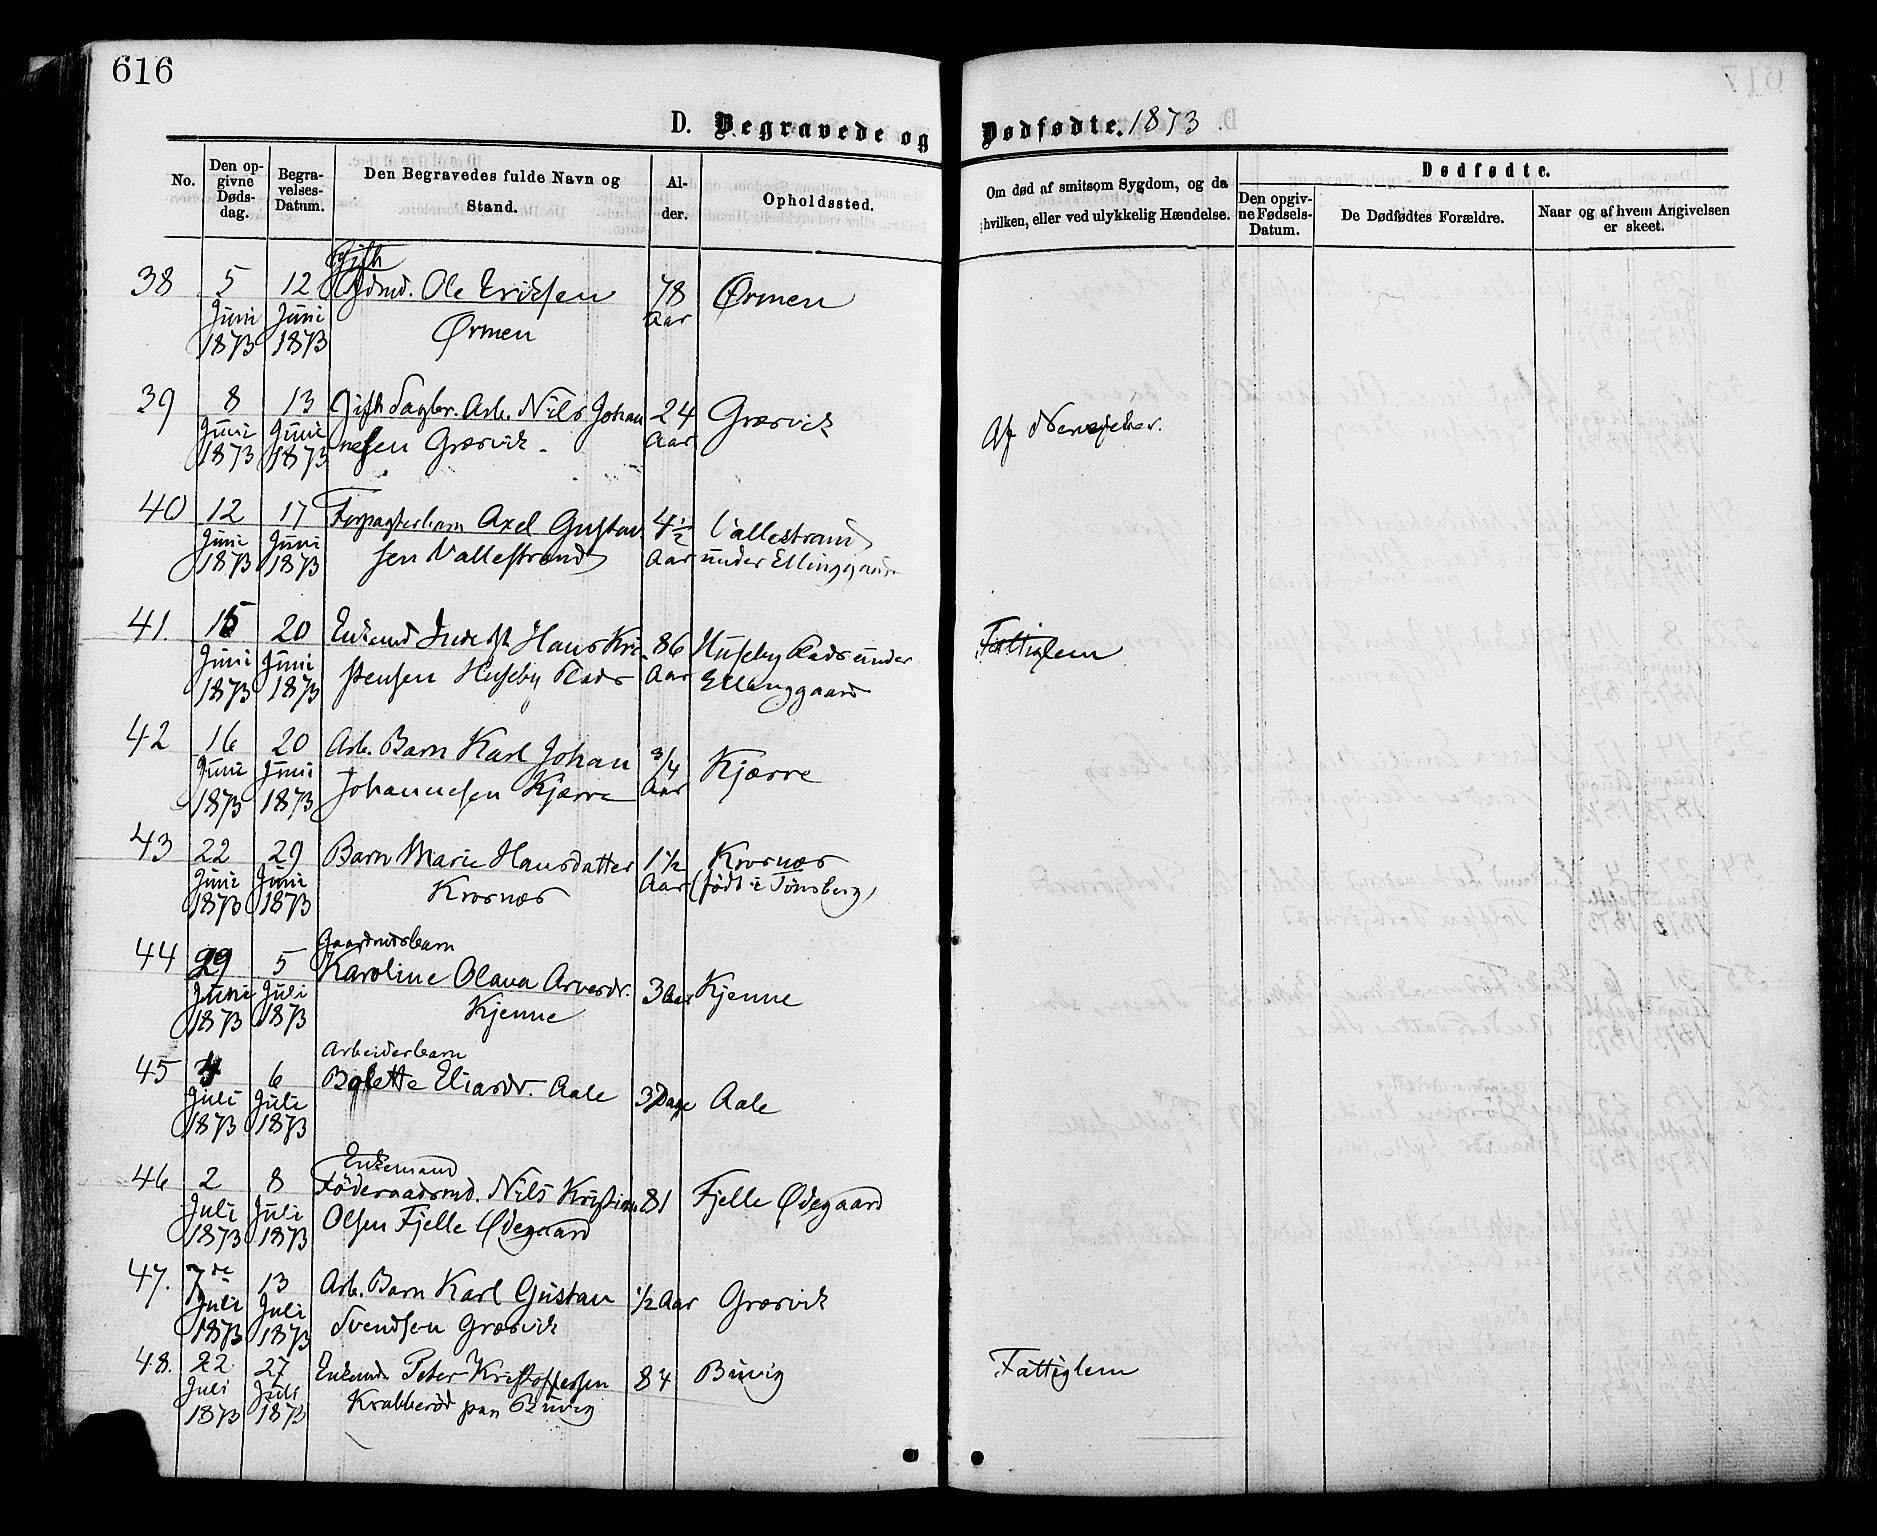 616
D. Begravede og Dødfødte. 1873
No.
Den opgivne Dødsdag.
Begravelses-Datum.
Den Begravedes fulde Navn og Stand.
Alder.
Opholdssted.
Om død af smitsom Sygdom, og da hvilken, eller ved ulykkelig Hændelse.
Dødfødte.
Den opgivne Fødsels-Datum.
De Dødfødtes Forældre.
Naar og af hvem Angivelsen er skeet.
Gift
38 5 12 Gdmd. Ole Eriksen 78 Ørmen
Juni Juni Ørmen Aar
1873 1873
39 8 13 Gift Sagbr. Arb. Nils Johan 24 Græsvik Af Nervefeber.
Juni Juni nesen Græsvik. Aar
1873 1873
40 12 17 Forpagterbarn Axel Gustav 4 1/2 Vallestrand
Juni Juni sen Vallestrand Aar under Elinggaard
1873 1873
41. 15 20 Enkemd Inderst Hans Kri 86 Huseby Plads under Fattiglem
Juni Juni stensen Huseby Plads Aar Elinggaard
1873 1873
42 16 20 Arb. Barn Karl Johan 3/4 Kjærre
Juni Juni Johannesen Kjærre Aar
1873 1873
43 22 29 Barn Marie Hansdatter 1 1/2 Krosnæs
Juni Juni Krosnæs Aar (født i Tønsberg)
1873 1873
Gaardmdsbarn
44 29 5 Karoline Olava Arvesdr. 3 Aar Kjenne
Juni Juli Kjenne
1873 1873
Arbeiderbarn
45 4 6 Bolette Eliasdr. Aale 3 Dage Aale
Juli Juli
1873 1873
Enkemand
46 2 8 Føderaadsmd. Nils Kristian 81 Fjelle Ødegaard
Juli Juli Olsen Fjelle Ødegaard
1873 1873
47. 7de 13 Arb. Barn Karl Gustav 1/2 Aar Græsvik
Juli Juli Svendsen Græsvik
1873 1873
48. 22 27 Enkemd. Peter Kristoffersen 84 Buvig Fattiglem
Juli Juli Krabberød paa Buvig
1873 1873